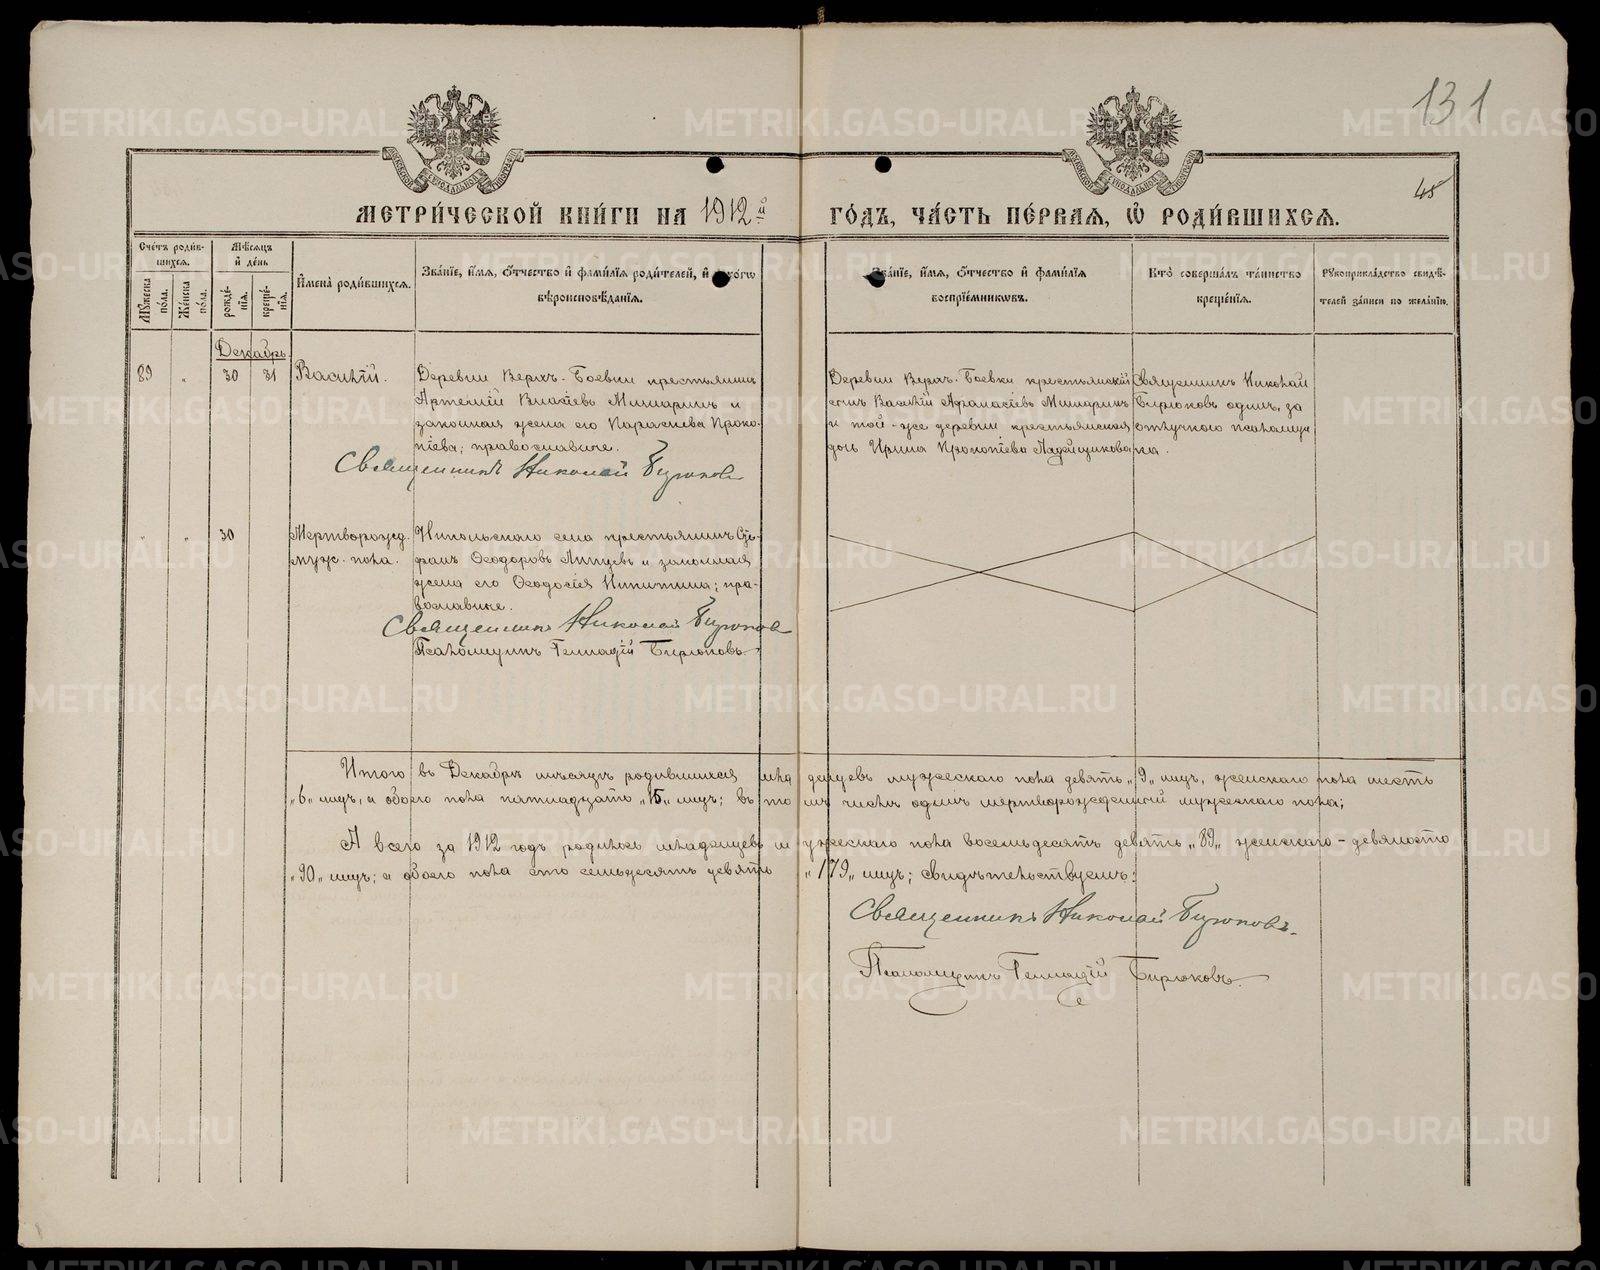 131
45
МЕТРИЧЕСКОЙ КНИГИ НА 1912й ГОДЪ, ЧАСТЬ ПЕРВАЯ, Ѡ РОДИВШИХСЯ.
Счетъ родив-
шихся.
Мѣсяцъ
и день
Мужеска
пола.
Женска
пола.
рожде-
нія.
креще-
нія.
Имена родившихся.
Званіе, имя, отчество и фамилія родителей, и когѡ
вѣроисповѣданія.
Званіе, имя, отчество и фамилія
воспріемниковъ.
Кто совершалъ таинство
крещенія.
Рукоприкладство свидѣ-
телей записи по желанію.
Декабрь
89 " 30 31 Василій.
Деревни Верхъ-Боевки крестьянинъ
Артемій Власіевъ Мишаринъ и
законная жена его Параскева Проко-
піева; православные.
Священникъ Николай Бирюковъ
Деревни Верхъ-Боевки крестьянскій
сынъ Василій Афанасіевъ Мишаринъ
и той-же деревни крестьянская
дочь Ирина Прокопіева Ладейщикова
Священникъ Николай
Бирюковъ одинъ, за
отлучкою псаломщи
ка.
" " 30 Мертворожд.
муж. пола.
Никольскаго села крестьянинъ Сте-
фанъ Ѳеодоровъ и законная
жена его Ѳеодосія Никитина; пра-
вославные.
Священникъ Николай Бирюковъ
Псаломщикъ Геннадій Бирюковъ
Итого въ Декабрѣ мѣсяцѣ родившихся младенцевъ мужескаго пола девять "9" лицъ, женскаго пола шесть
"6" лицъ, а обоего пола пятнадцать "15" лицъ; въ томъ числѣ одинъ мертворожденный мужескаго пола;
А всего за 1912 годъ родилось младенцевъ мужескаго пола восемьдесятъ девять "89" женскаго - девяносто
"90" лицъ; а обоего пола сто семьдесятъ девять "179" лицъ; свидѣтельствуемъ:
Священникъ Николай Бирюковъ.
Псаломщикъ Геннадій Бирюковъ.
METRIKI.GASO-URAL.RU